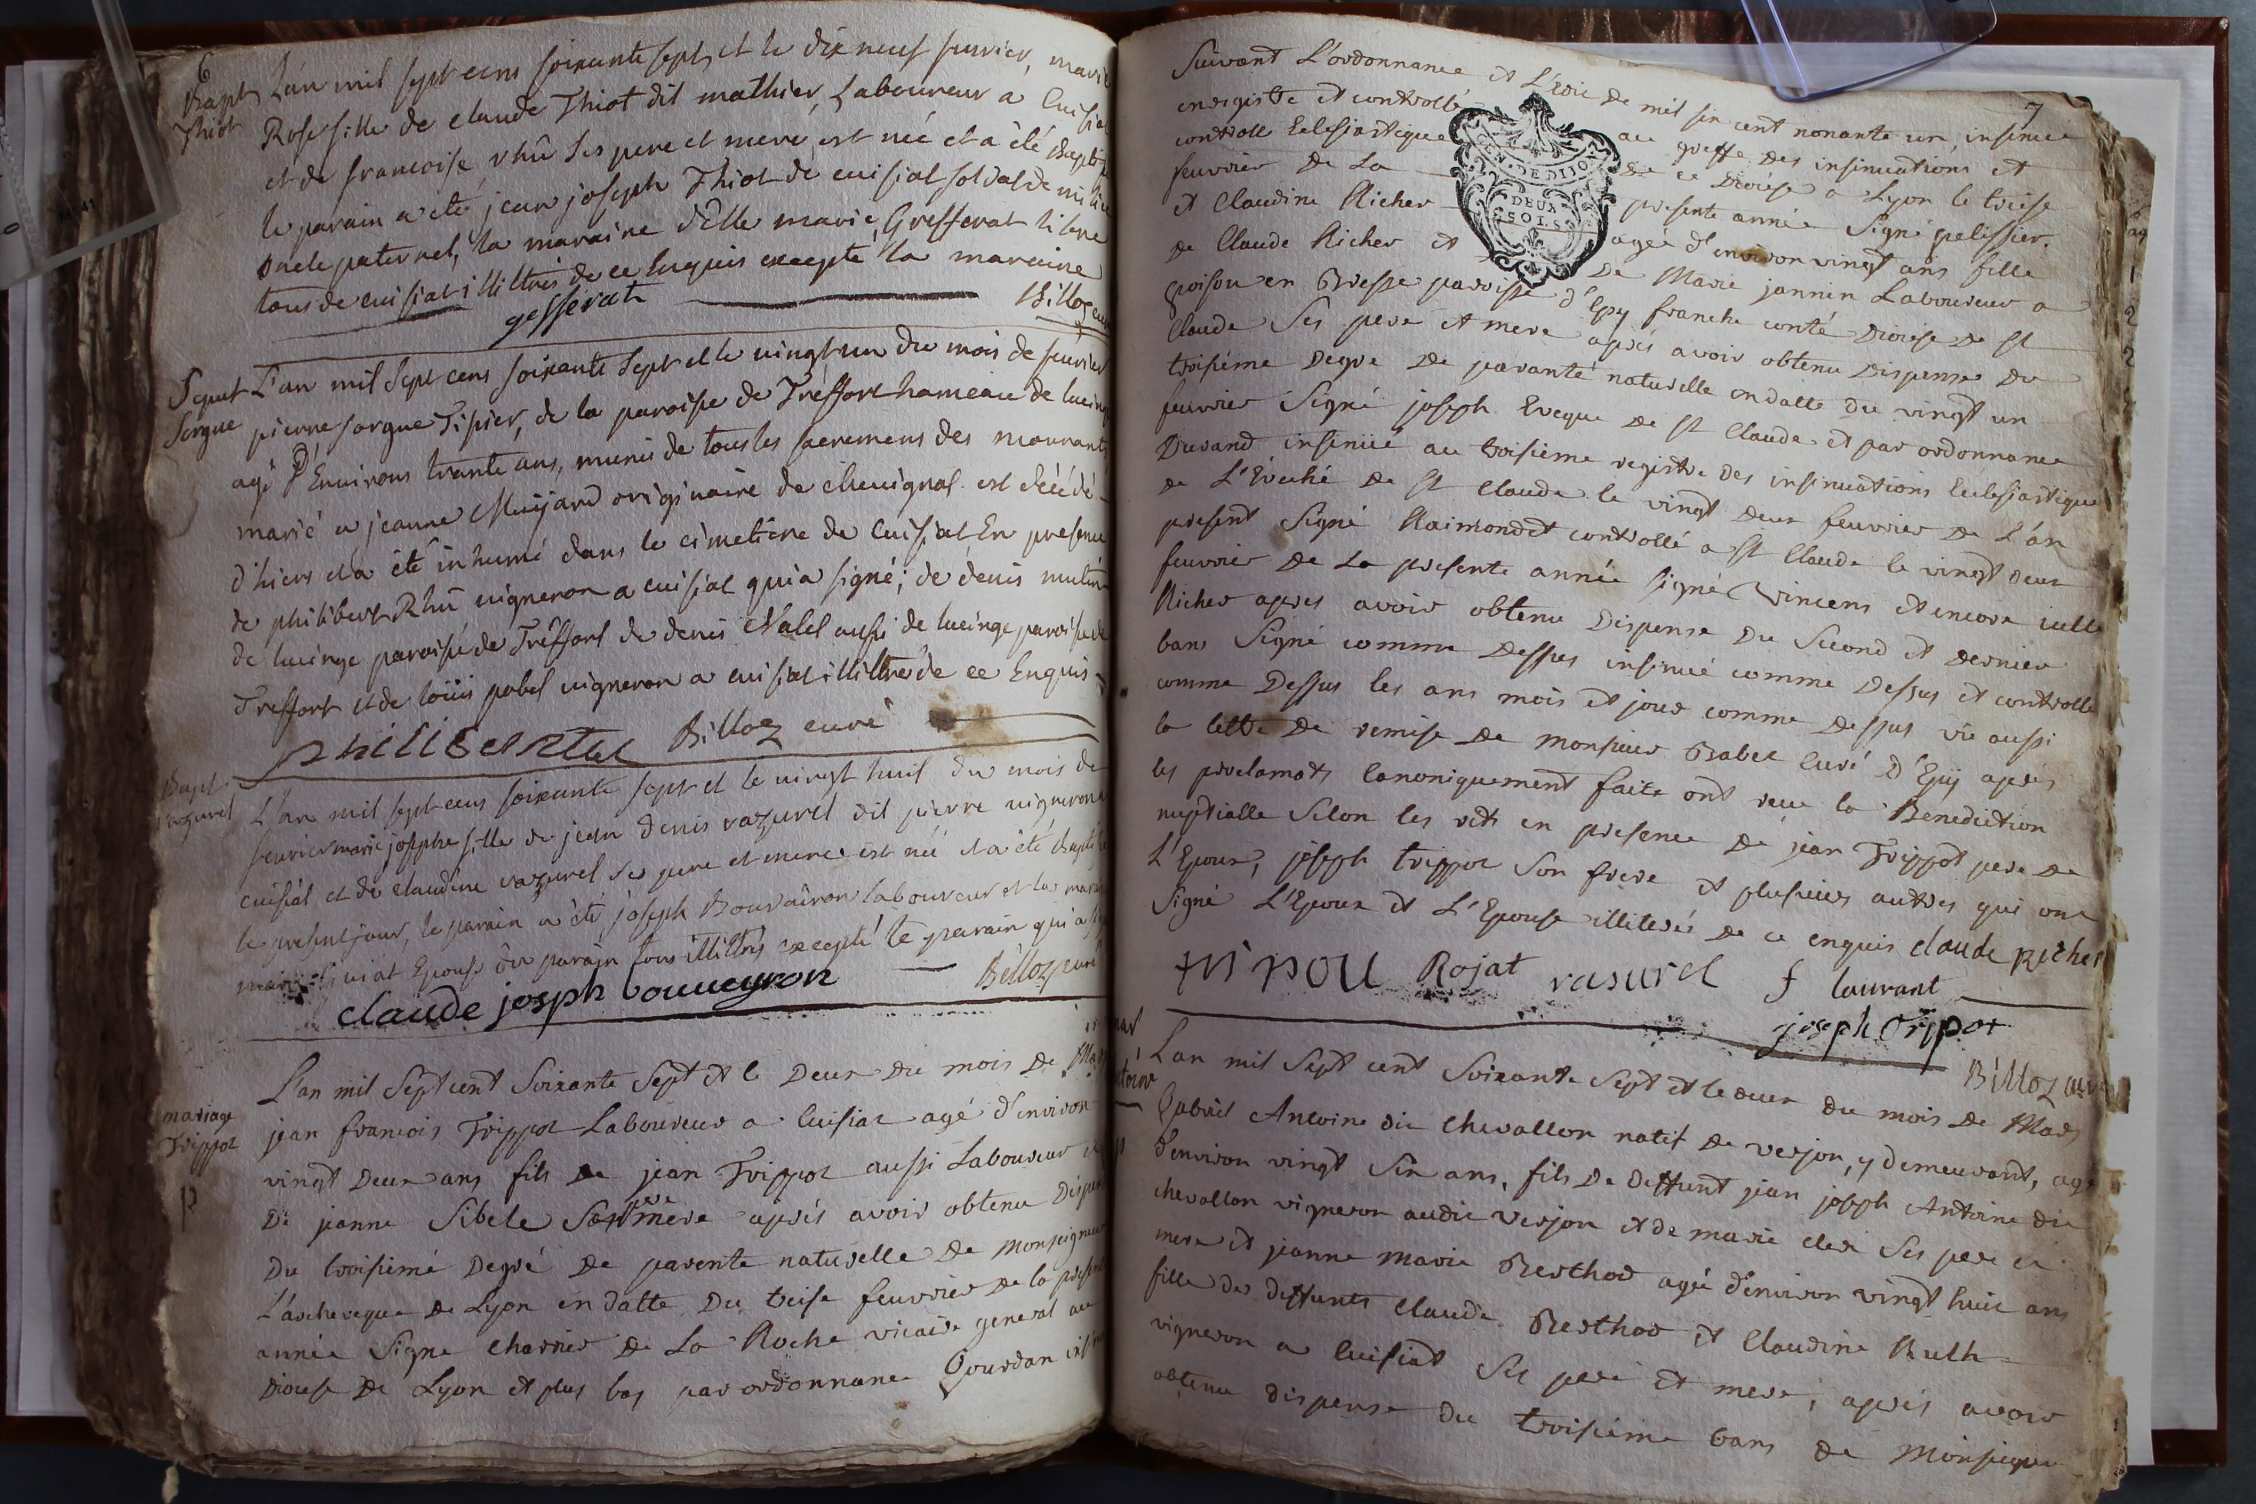 6
Bapt
Thiot
L'an mil sept cens soixante sept, et le dix neuf fevrier, marie
Rose fille de claude Thiot dit mathier, Laboureur a Cuisiat
et de francoise rhû ses pere et mere, est née et a été Baptisée
le parain a été jean joseph Thiot de cuisiat soldat de milice
oncle paternel, la maraine dlle marie Grefferat
tous de cuisiat illittrés de ce Enquis excepté la maraine
gesserat
Billoz curé
Sepult
Sorgue
L'an mil sept cens soixante sept et le vingt un du mois de fevrier
pierre sorgue Tisier, de la paroisse de Tréffort hameau de lucinge
agé d'Environs trante ans, munis de tous les sacremens des mourants
marié a jeanne Muijard originaire de chevignat est décédé
d'hiers et a été inhumé dans le cimetiere de Cuisiat En presence
de philibert Rhû vigneron a cuisiat qui a signé; de denis mutin
de lucinge paroisse de Tréffort de denis Nalet aussi de lucinge paroisse de
Treffort et de loüis pobel vigneron a cuisiat illittré de ce Enquis
Billoz curé
Bapt
razurel
L'an mil sept cens soixante sept et le vingt huit du mois de
fevrier marie josephe fille de jean denis razurel dit pierre vigneron a
cuisiat et de claudine razurel ses pere et mere est née et a été Baptisée
le present jour, le parain a été joseph Bouvairon laboureur et la maraine
marie Guiat Epouse du parain tous illittrés excepté le parain qui a signé
claude joseph bouveyron
Billoz curé
mariage
Trippoz
p
L'an mil sept cent soixante sept et le Deux du mois de Mars
jean francois Trippoz Laboureur a Cuisiat agé d'environ
vingt Deux ans fils de jean Trippoz aussi Laboureur et
De jeanne Sibele Ses pere mere après avoir obtenu Dispense
Du troisiemé Degré de parenté naturelle de Monseigneur
L'archeveque de Lyon en datte Du treise feuvrier de la presente
année Signé charrier de La Roche vicaire general au
Diocese De Lyon et plus bas par ordonnance Gourdan insinué
7
Suivant L'ordonnance et L'Edit de mil six cent nonante un, insinué
enregistré et controllé au greffe des insinuations et
controlle Eclesiastique de ce Diocese a Lyon le treise
feuvrier de La presente année Signé pelissier,
EN. DE DIJON
DEUX
SOLS
et Claudine Richer agée d'environ vingt ans fille
de Claude Richer et De Marie jannin Laboureur a
poisou en Bresse paroisse d'Epy franche conté Diocese de St
Claude Ses pere et mere après avoir obtenu Dispense Du
troisiéme Degre de paranté naturelle en datte du vingt un
feuvrier Signé joseph Eveque de St Claude et par ordonnance
Durand insinüé au troisieme registre des insinuations Eclesiastique
de L'Evéché de St Claude le vingt deux feuvrier de L'an
present Signé Raimondet controllé a St Claude le vingt deux
feuvrier de La presente année signé vincens et encore icelle
Richer apres avoir obtenu Dispense Du Second et dernier
bans Signé comme Dessus insinué comme Dessus et controllé
comme Dessus les ans mois et jour comme dessus vû aussi
la lettre de remise de monsieur Babet Curé d'Epÿ après
les proclamats Canoniquement faits ont reçu la Bénédiction
nuptialle Selon les rits en presence de jean Trippot pere de
L'Epoux, joseph trippoz Son frere et plusieurs autres qui ont
Signé L'Epoux et L'Epouse illiterés de ce enquis claude Richer
tripou Rojat rasurel f laurant
joseph Tripot
Billoz curé
L'an mil Sept cent Soixante Sept et le deux du mois de Mars
Gabriel Antoine dit chevallon natif de verjon, y demeurant, agé
d'environ vingt Six ans, fils de Deffunt jean joseph Antoine dit
chevallon vigneron audit verjon et de marie clere Ses pere et
mere et jeanne marie Berthod agée d'environ vingt huit ans
fille des deffunts Claude Berthod et Claudine Ruth
vigneron a Cuisiat Ses pere et mere; après avoir
obtenu dispense du troisiéme bans de Monseigneur